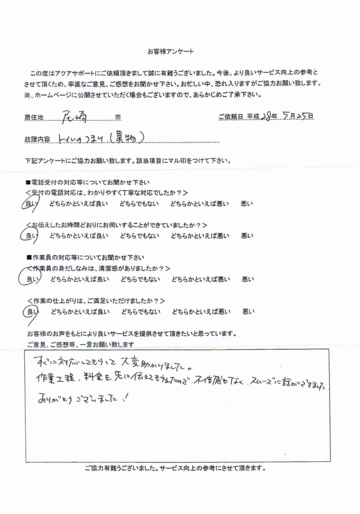 お客様アンケート
この度はアクアサポートにご依頼頂きまして誠に有難うございました。今後、より良いサービス向上の参考と
させて頂くため、率直なご意見、ご感想をお聞かせ下さい。お忙しい中、恐れ入りますがご協力お願い致します。
尚、ホームページに公開させていただく場合もございますので、あらかじめご了承下さい。
居住地 尼崎 市 ご依頼日 平成28年 5月25日
故障内容 トイレのつまり(異物)
下記アンケートにご協力お願い致します。該当項目にマル印をつけて下さい。
■電話受付の対応等についてお聞かせ下さい
<受付の電話対応は、わかりやすく丁寧な対応でしたか?>
良い どちらかといえば良い どちらでもない どちらかといえば悪い 悪い
<お伝えしたお時間どおりにお伺いすることができていましたか?>
良い どちらかといえば良い どちらでもない どちらかといえば悪い 悪い
■作業員の対応等についてお聞かせ下さい
<作業員の身だしなみは、清潔感がありましたか?>
良い どちらかといえば良い どちらでもない どちらかといえば悪い 悪い
<作業の仕上がりは、ご満足いただけましたか?>
良い どちらかといえば良い どちらでもない どちらかといえば悪い 悪い
お客様のお声をもとにより良いサービスを提供させて頂きたいと思っています。
ご意見、ご感想等、一言お願い致します
すぐに対応してもらって大変助かりました。
作業工程、料金も先に伝えてもらえたので、不信感もなく、スムーズに話ができました
ありがとうございました!
ご協力有難うございました。サービス向上の参考にさせて頂きます。